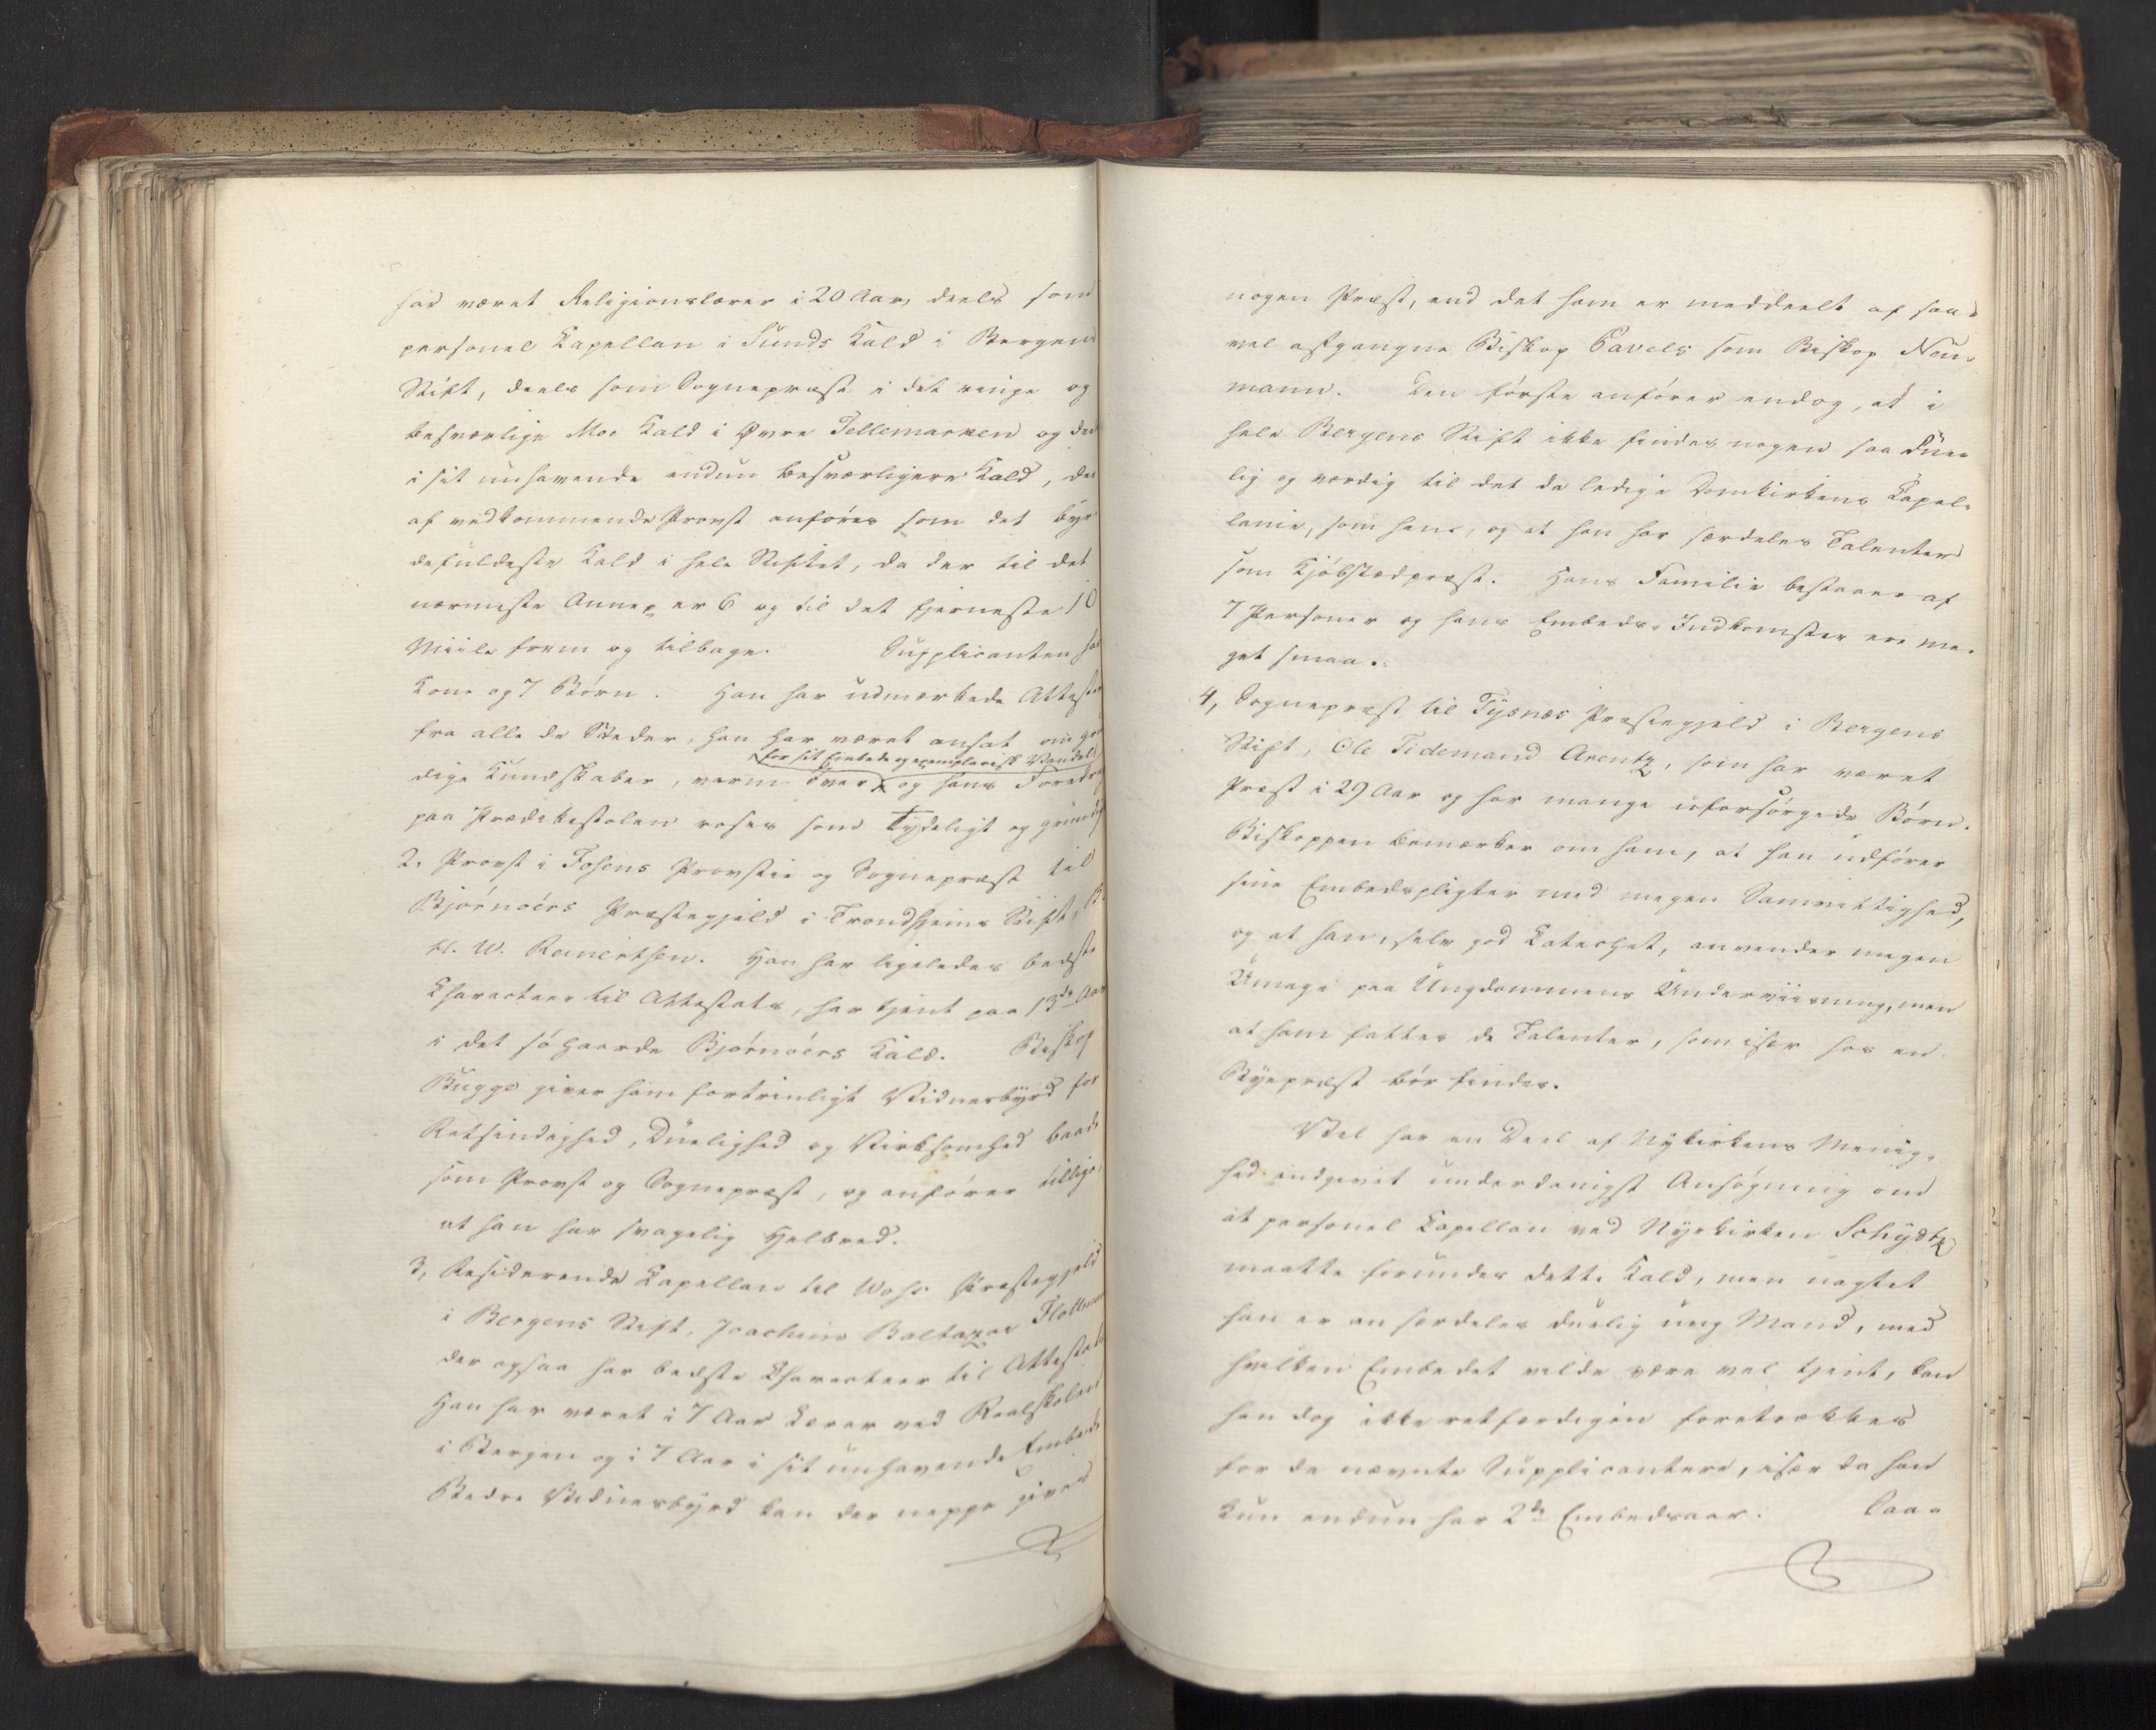 har været Religionslærer i 20 Aar, deels som
personel Capellan i Sunds Kald i Bergens
Stift, deels som Sognepræst i det ringe og
besværlige Moe Kald i Øvre Tellemarken og deels
i sit innhavende endnu besværligere Kald, der
af vedkommende Provst anføres som det byr-
defuldeste Kald i hele Stiftet, da der til det
nærmeste Annex er 6 og til det fjerneste 10
Miile frem og tilbage. Supplicanten har
Kone og 7 Børn. Han har udmærkede Attester
fra alle de Steder, han har været ansat om grun-
for sit Embede og exemplarisk Vandel
dige Kundskaber, varm Iver og hans Foredrag
paa Prædikestolen roses som tydeligt og grundigt
2. Provst i Fosens Provstie og Sognepræst til
Bjørnøers Præstegjeld i Trondhjems Stift,
H. W. Reinertsen. Han har ligeledes bedste
Characteer til Attestats, har tjent paa 13de Aar
i det søhaarde Bjørnøers Kald. Biskop
Bugge giver ham fortrinligt Vidnesbyrd for
Retsindighed, Duelighed og Virksomhed baade
som Provst og Sognepræst, og anfører tillige,
at han har svagelig Helbred.
3, Residerende Capellan til Woss Præstegjeld
i Bergens Stift, Joachim Baltazar Flottmann
der ogsaa har bedste Characteer til Attestats
Han har været i 7 Aar Lærer ved Realskolen
i Bergen og i 7 Aar i sit innhavende Embede
Bedre Vidnesbyrd kan der neppe gives
nogen Præst, end det ham er meddeelt af saa-
vel afgangne Biskop Pavels som Biskop Neu-
mann. Den første anfører endog, at i
hele Bergens Stift ikke findes nogen saa due-
lig og værdig til det da ledige Domkirkens Capel-
lanie, som han, og at han har særdeles Talenter
som Kjøbstædpræst. Hans Familie bestaaer af
7 Personer og hans Embeds-Indkomster ere me-
get smaa.
4, Sognepræst til Tysnæs Præstegjeld i Bergens
Stift, Ole Tidemand Arentz, som har været
Præst i 29 Aar og har mange uforsørgede Børn.
Biskoppen bemærker om ham, at han udfører
sine Embedspligter med megen Samvittighed,
og at han, selv god Catechet, anvender megen
Umage paa Ungdommens Underviisning, men
at ham fattes de Talenter, som især hos en
Byepræst bør findes.
Vel har en Deel af Nykirkens Menig-
hed indgivet underdanigst Ansøgning om
at personel Capellan ved Nyekirken Schydtz
maatte forundes dette Kald, men uagtet
han er en særdeles duelig ung Mand, med
hvilken Embedet vilde være vel tjent, kan
han dog ikke retfærdigen foretrækkes
for de nævnte Supplicantere, især da han
kun endnu har 2de Embedsaar. Caa-